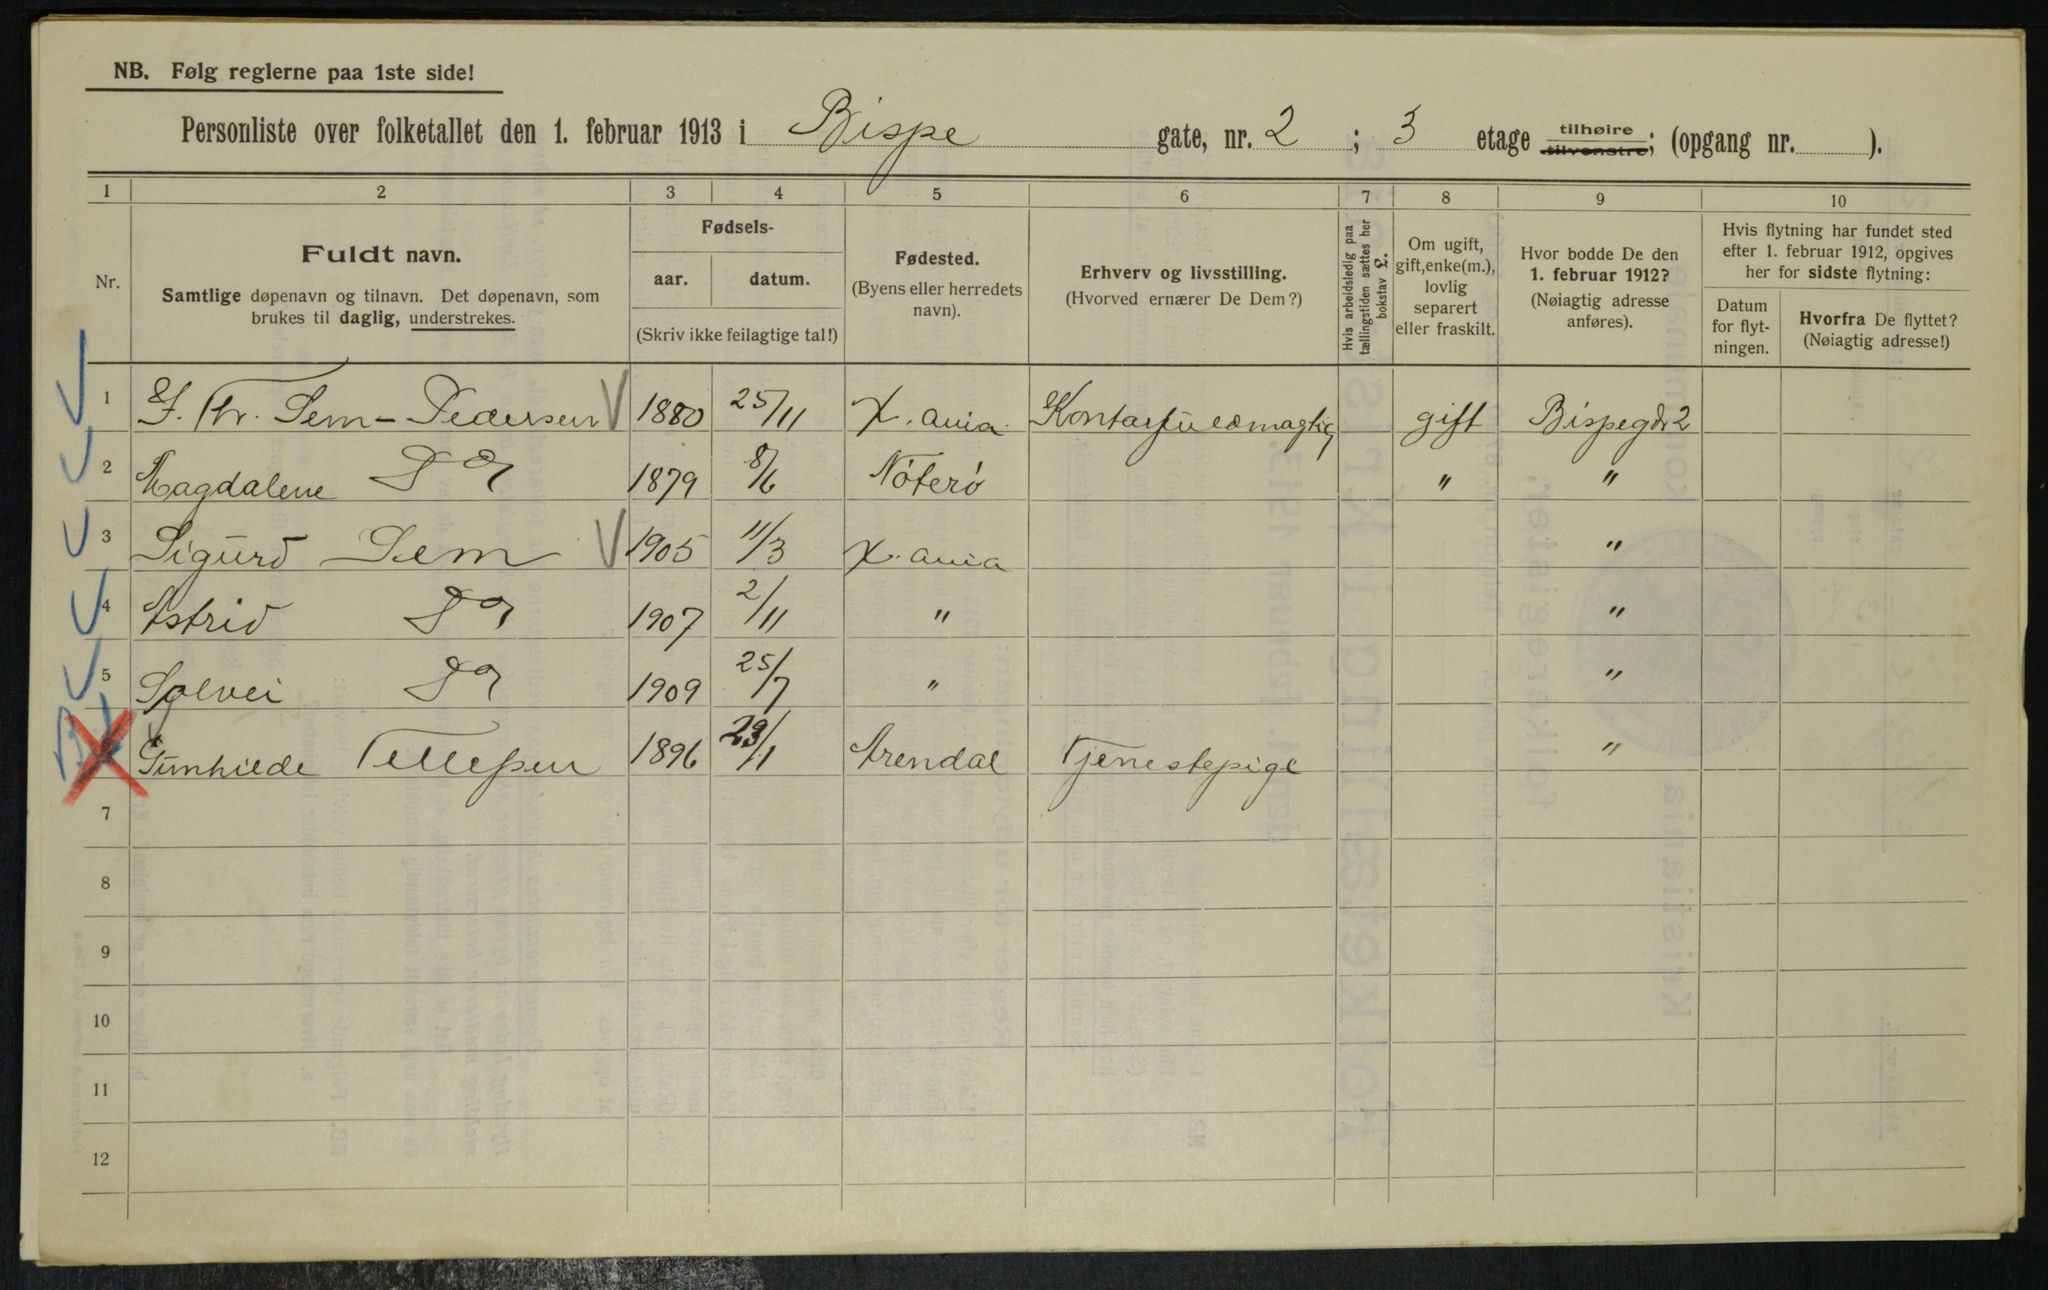 NB. Følg reglerne paa 1ste side!
Personliste over folketallet den 1. februar 1913 i Bispe gate, nr. 2 ; 3 etage tilhøire tilvenstre; (opgang nr. ).
1 2 3 4 5 6 7 8 9 10
Nr.
Fuldt navn.
Samtlige døpenavn og tilnavn. Det døpenavn, som
brukes til daglig, understrekes.
Fødsels-
aar. datum.
(Skriv ikke feilagtige tal!)
Fødested.
(Byens eller herredets
navn).
Erhverv og livsstilling.
(Hvorved ernærer De Dem?)
Hvis arbeidsledig paa
tællingstiden sættes her
bokstav L.
Om ugift,
gift, enke(m.),
lovlig
separert
eller fraskilt.
Hvor bodde De den
1. februar 1912?
(Nøiagtig adresse
anføres).
Hvis flytning har fundet sted
efter 1. februar 1912, opgives
her for sidste flytning:
Datum
for flyt-
ningen.
Hvorfra De flyttet?
(Nøiagtig adresse!)
1 Thr. Sem-Pedersen 1880 25/11 X.ania Kontorfuldmægtig gift Bispegd. 2
2 Magdalene Do 1879 8/6 Nøterö " "
3 Sigurd Sem 1905 11/3 X.ania "
4 Astrid Do 1907 2/11 " "
5 Solvei Do 1909 25/7 " "
Gunhilde Tellefsen 1896 23/1 Arendal Tjenestepige "
7
8
9
10
11
12